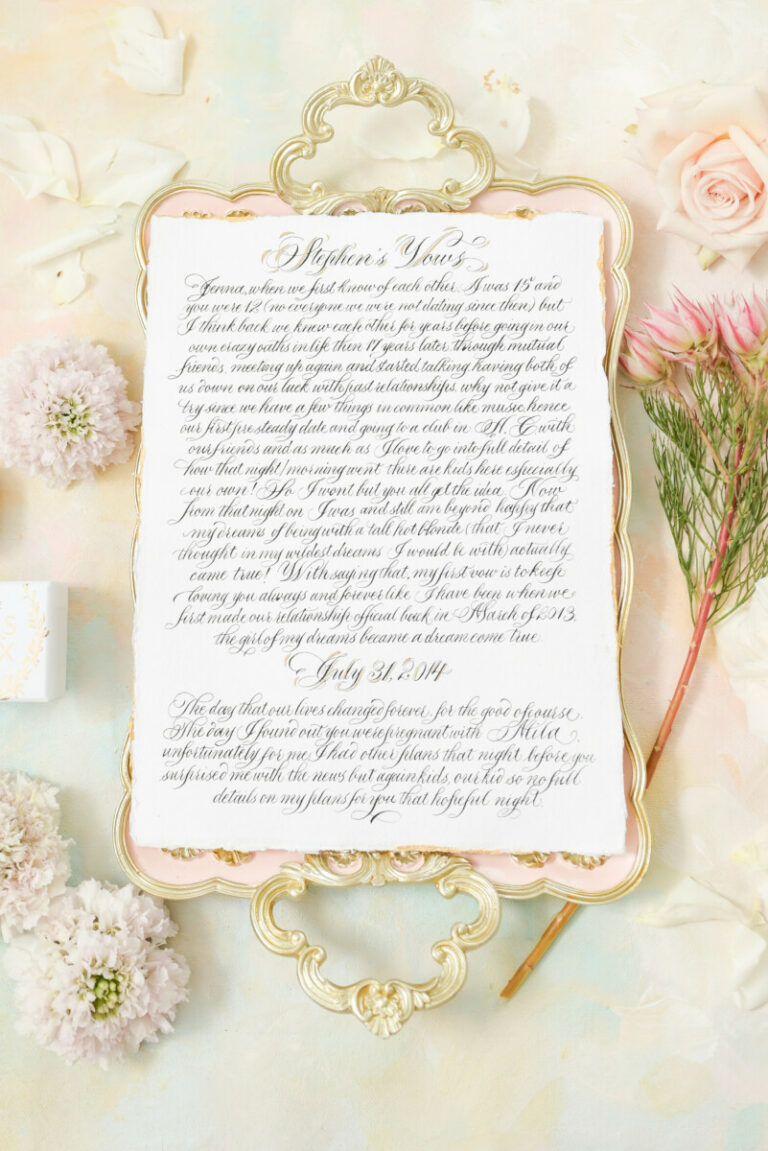 Stephen's Vows
Jenna, when we first know of each other. I was 15 and
you were 12 (no everyone we were not dating since then) but
I think back we knew each other for years before going in our
own crazy oaths in life then 17 years later, through mutual
friends, meeting up again and started talking, having both of
us down on our luck with past relationships, why not give it a
try since we have a few things in common like music, hence
our first pre steady date and going to a club in A. C with
our friends and as much as I love to go into full detail of
how that night/morning went there are kids here especially
our own! So I wont but you all get the idea. Now
from that night on I was and still am beyond happy that
my dreams of being with a tall hot blonde (that I never
thought in my wildest dreams I would be with) actually
came true! With saying that, my first vow is to keep
loving you always and forever like I have been when we
first made our relationship official back in March of 2013,
the girl of my dreams became a dream come true.
July 31, 2014
The day that our lives changed forever, for the good of course.
The day I found out you were pregnant with Mila,
unfortunately for me I had other plans that night before you
surprised me with the news but again kids, our kid so no full
details on my plans for you that hopeful night.